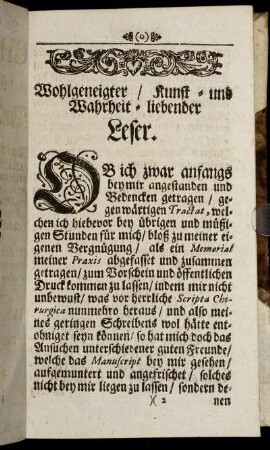 (o)
Wohlgeneigter / Kunst- und
Wahrheit-liebender
Leser.
OB ich zwar anfangs
bey mir angestanden und
Bedencken getragen / ge-
genwärtigen Tractat, wel-
chen ich hiebevor bey übrigen und müßi-
gen Stunden für mich / bloß zu meiner ei-
genen Vergnügung / als ein Memorial
meiner Praxis abgefasset und zusammen
getragen / zum Vorschein und öffentlichen
Druck kommen zu lassen / indem mir nicht
unbewust / was vor herrliche Scripta Chi-
rurgica nunmehro heraus / und also mei-
nes geringen Schreibens wol hätte ent-
ohniget seyn können / so hat mich doch das
Ansuchen unterschiedener guten Freunde /
welche das Manuscript bey mir gesehen /
aufgemuntert und angefrischet / solches
nicht bey mir liegen zu lassen / sondern de-
)( 2 nen